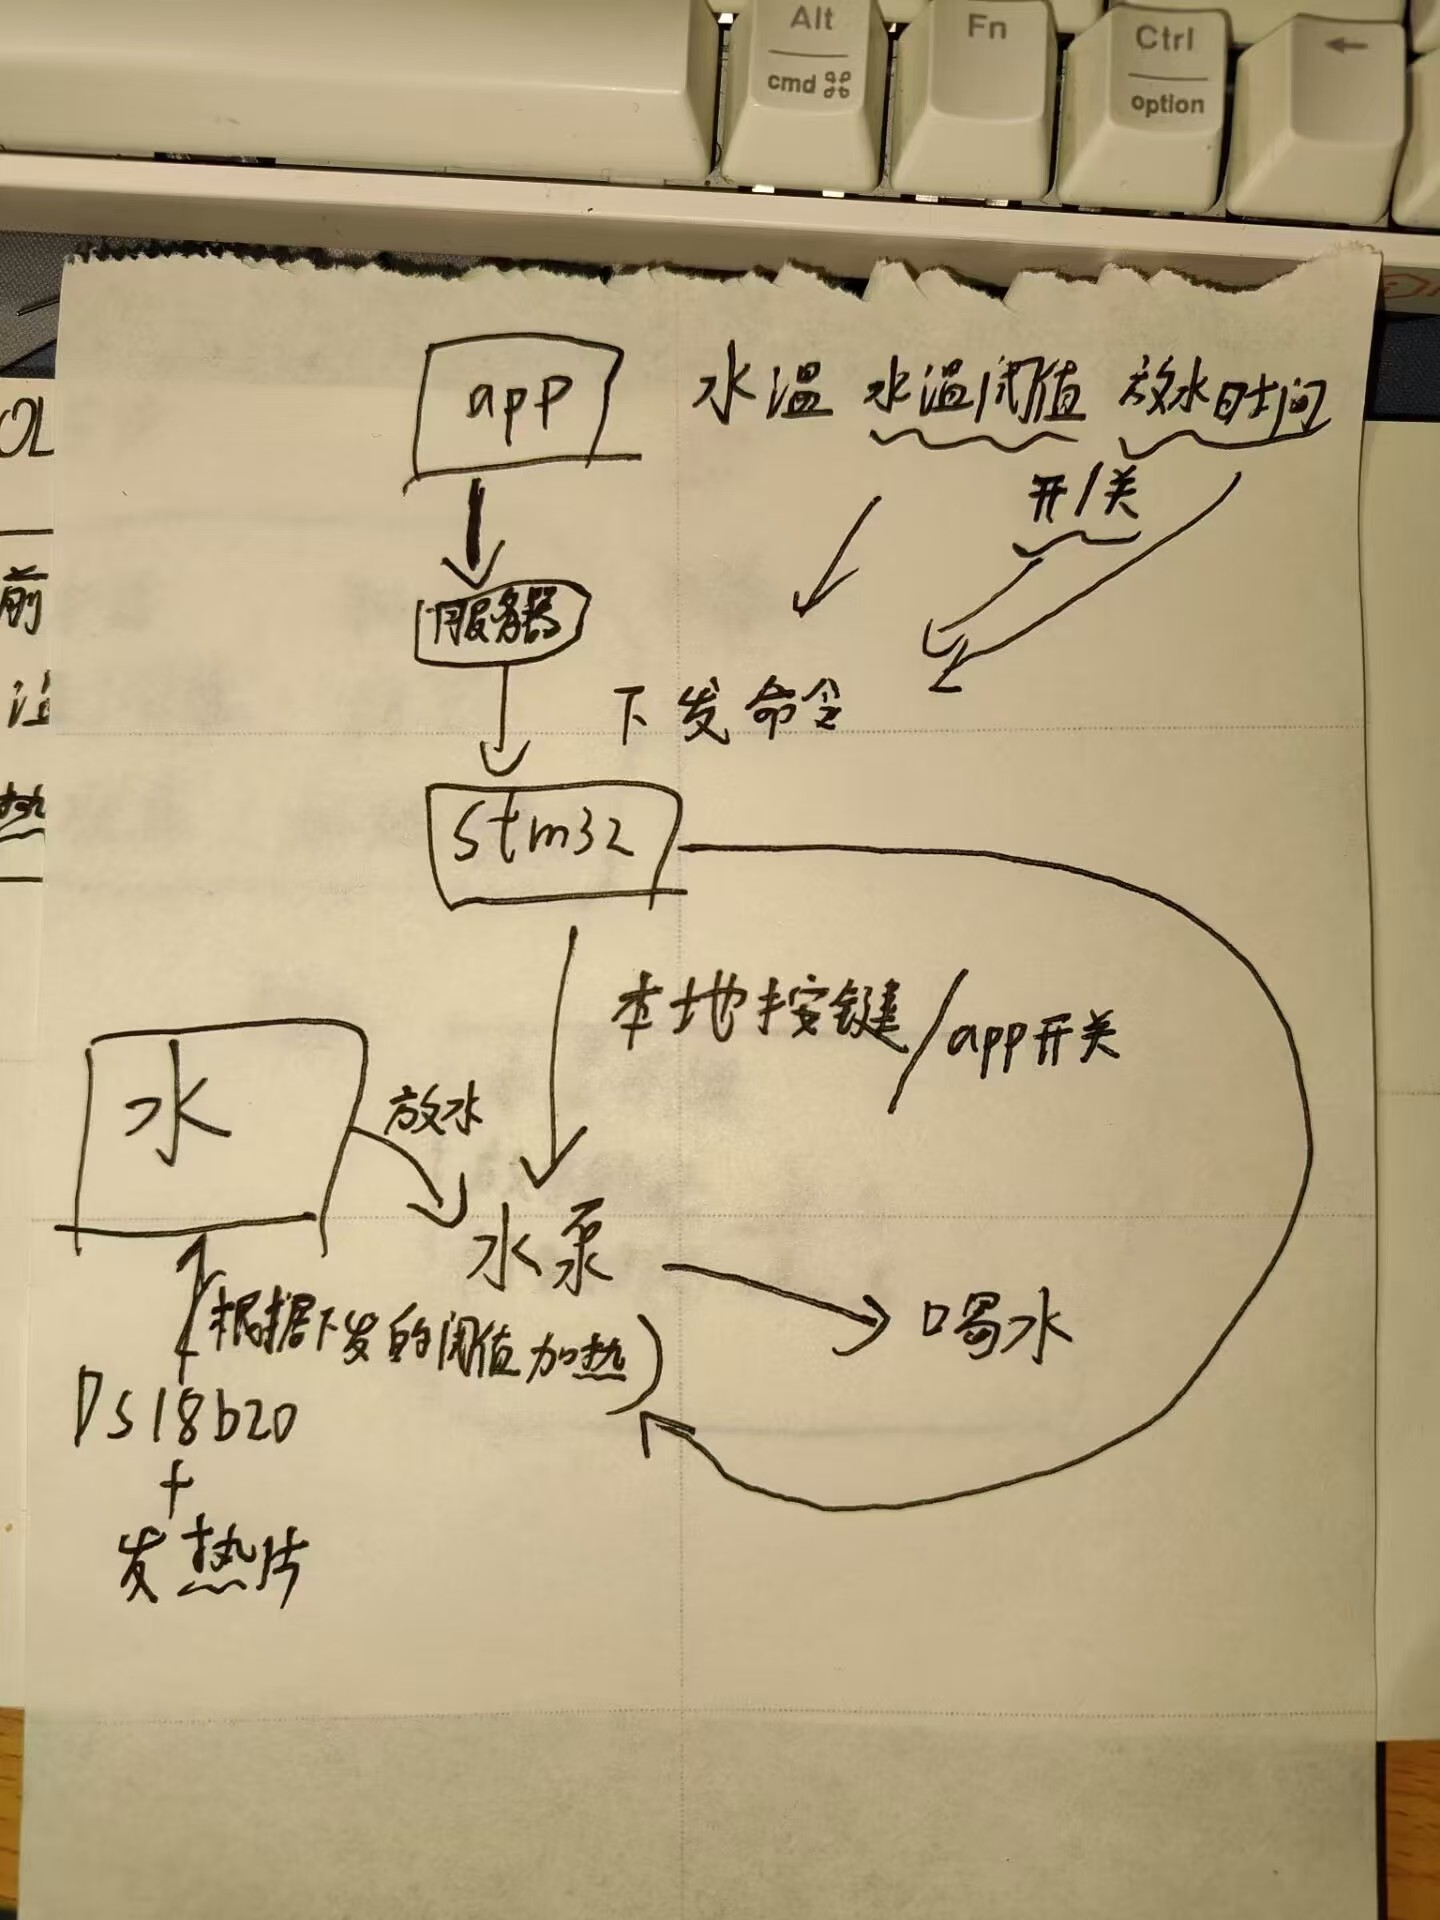 Alt Fn Ctrl ←
cmd ⌘ option
app 水温 水温阈值 放水时间
开/关
服务器
下发命令
stm32
本地按键/app开关
水
放水
水泵
喝水
根据下发的阈值加热)
DS18b20
+
发热片
前